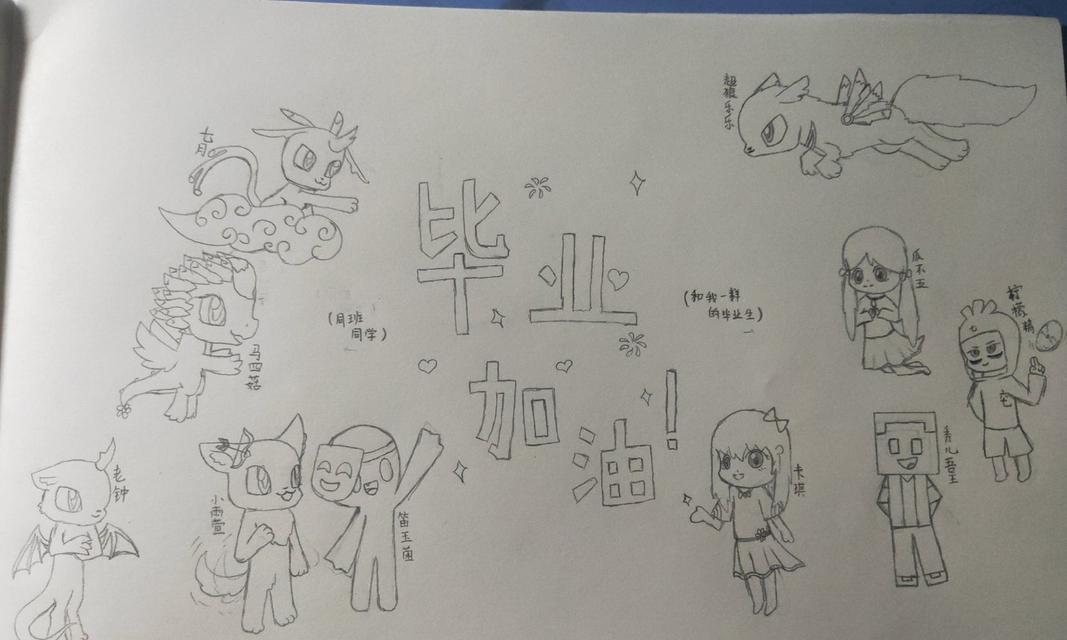 毕业
加油!
(同班
同学)
(和我一样
的毕业生)
七月
马四菇
老钟
小雨萱
笛玉菌
超狼乐乐
瓜不五
柠檬精
卡琪
秀儿吾王